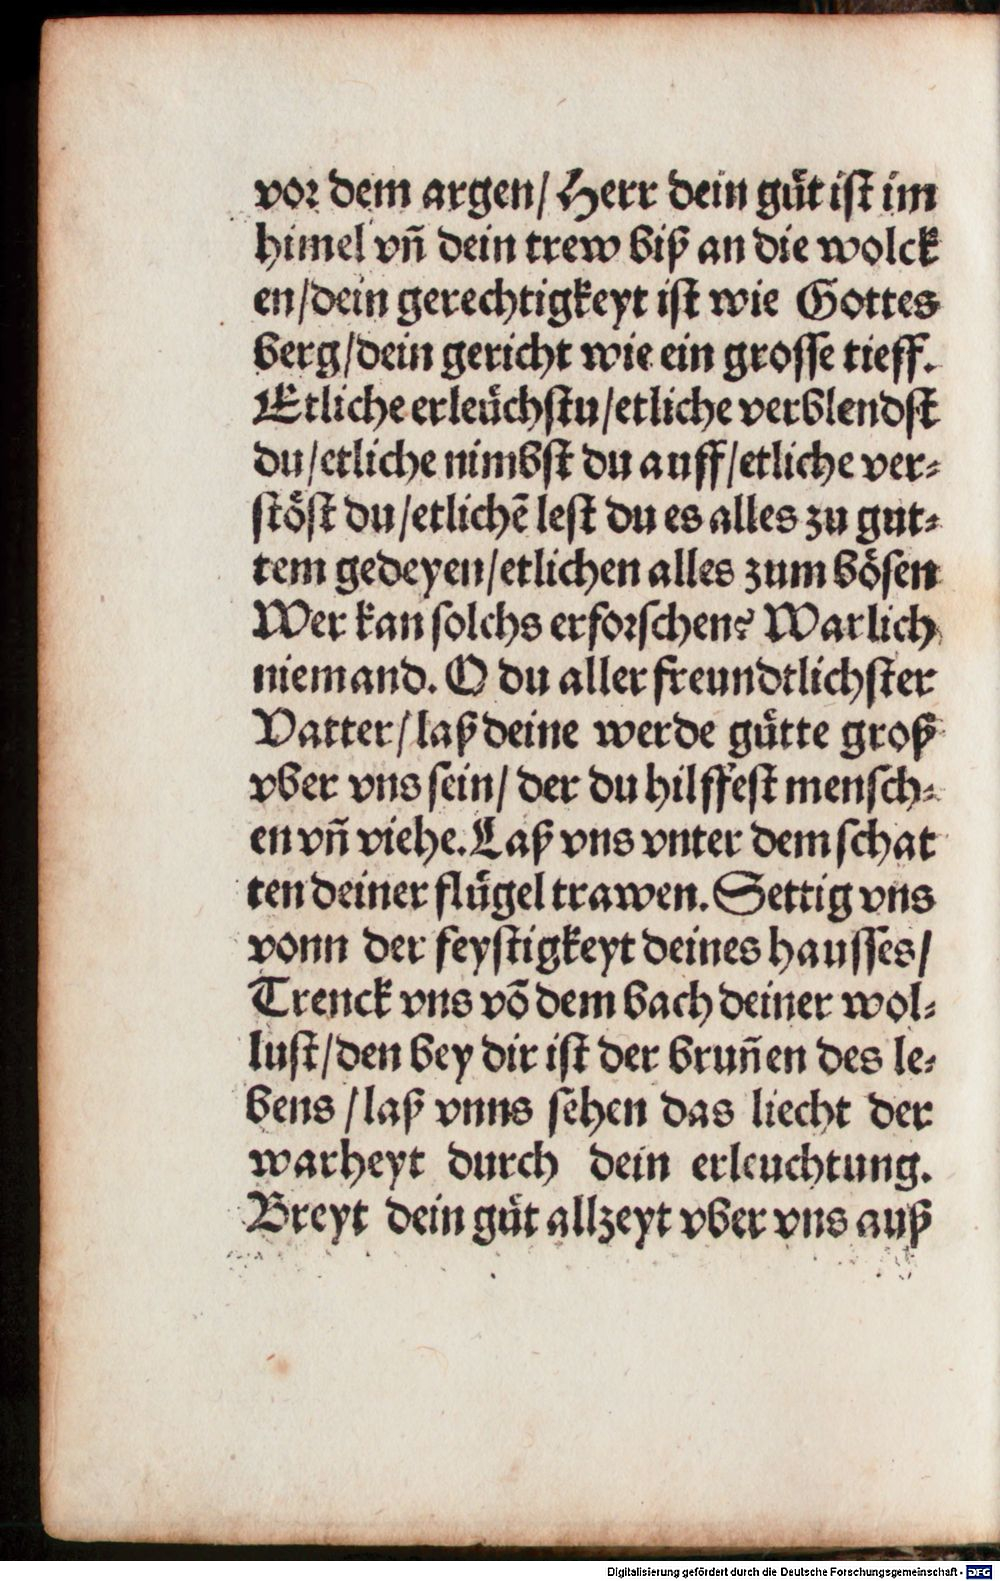 vor dem argen/ Herr dein guͤt ist im
himel vñ dein trew biß an die wolck
en/dein gerechtigkeyt ist wie Gottes
berg/dein gericht wie ein grosse tieff.
Etliche erleuͤchstu/etliche verblendst
du/etliche nimbst du auff/etliche ver⸗
stoͤst du/etlichē lest du es alles zu gut⸗
tem gedeyen/etlichen alles zum boͤsen
Wer kan solchs erforschen? Warlich
niemand. O du aller freundtlichster
Vatter/laß deine werde guͤtte groß
vber vns sein/ der du hilffest mensch⸗
en vñ viehe. Laß vns vnter dem schat
ten deiner fluͤgel trawen. Settig vns
vonn der feystigkeyt deines hausses/
Trenck vns võ dem bach deiner wol⸗
lust/den bey dir ist der bruñen des le⸗
bens /laß vnns sehen das liecht der
warheyt durch dein erleuchtung.
Breyt dein guͤt allzeyt vber vns auß
Digitalisierung gefördert durch die Deutsche Forschungsgemeinschaft - DFG